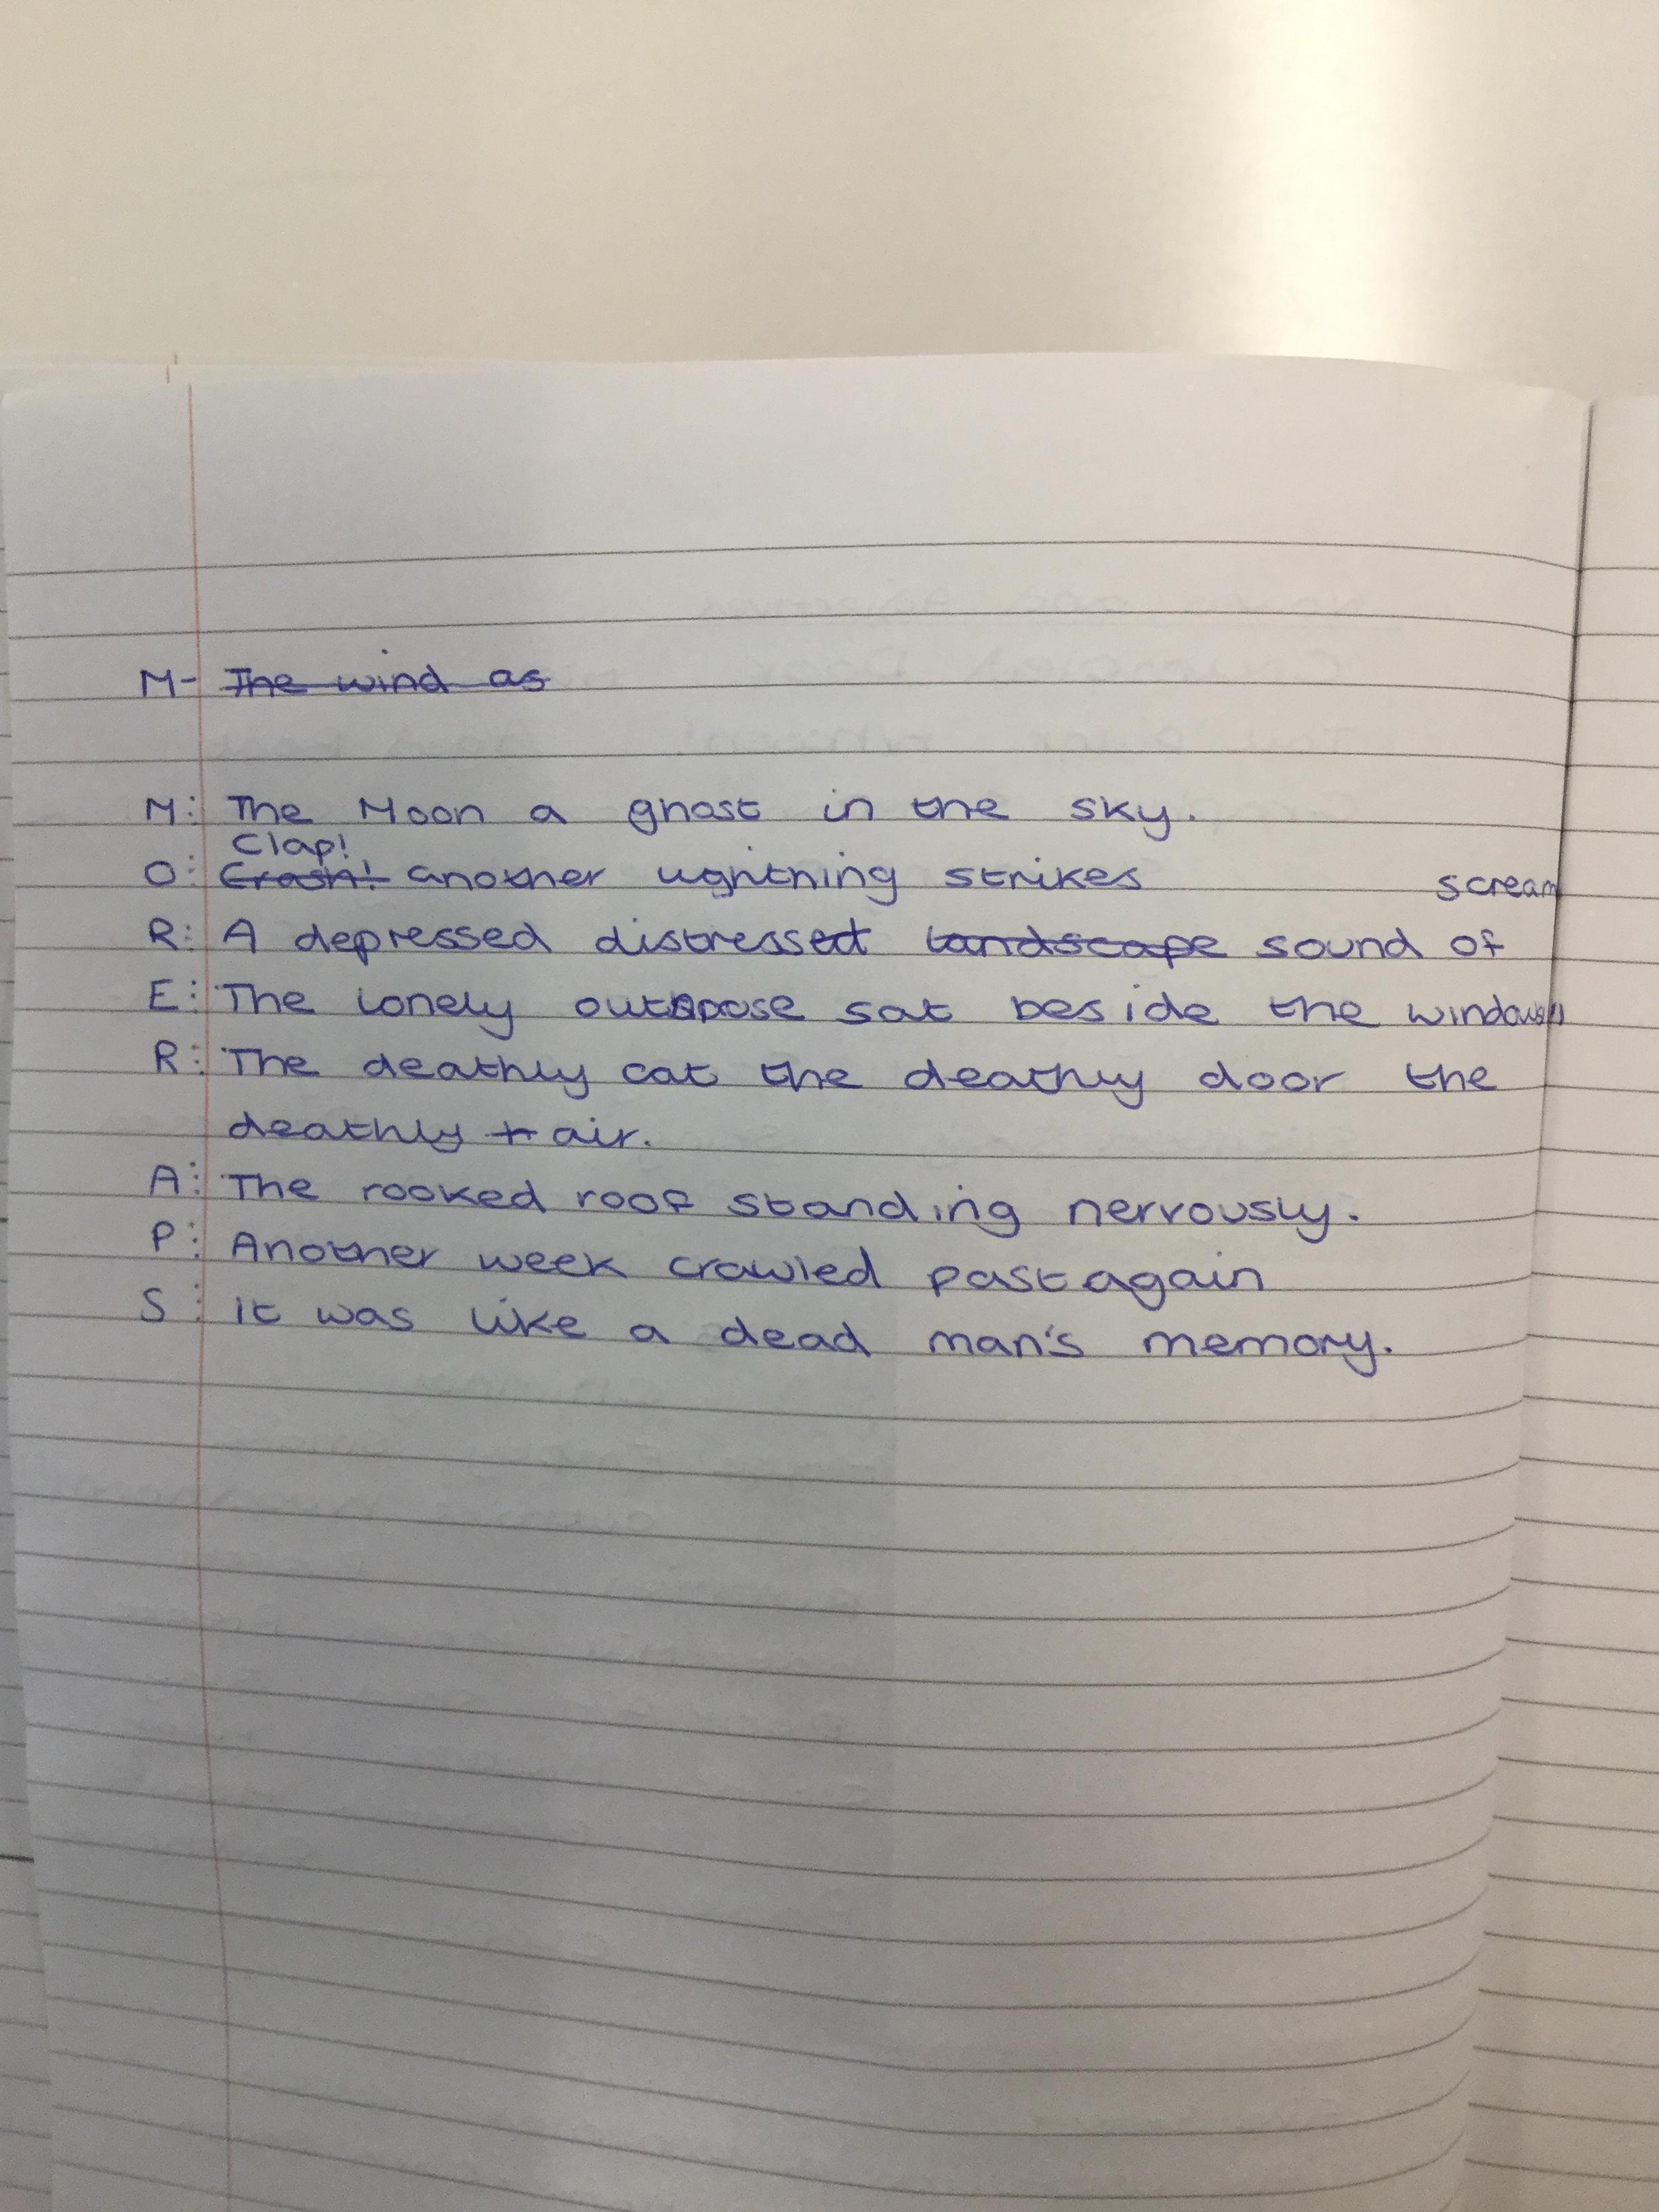 M- The wind as
M: The Moon a ghost in the sky.
Clap!
O: Crash! another lightning strikes
R: A depressed distressed landscape sound of scream
E: The lonely outspose sat beside the
R: The deathly cat the deathly door the
deathly tr air.
A: The rooked roof standing nervously.
P: Another week crawled past again
S: it was like a dead man's memory.